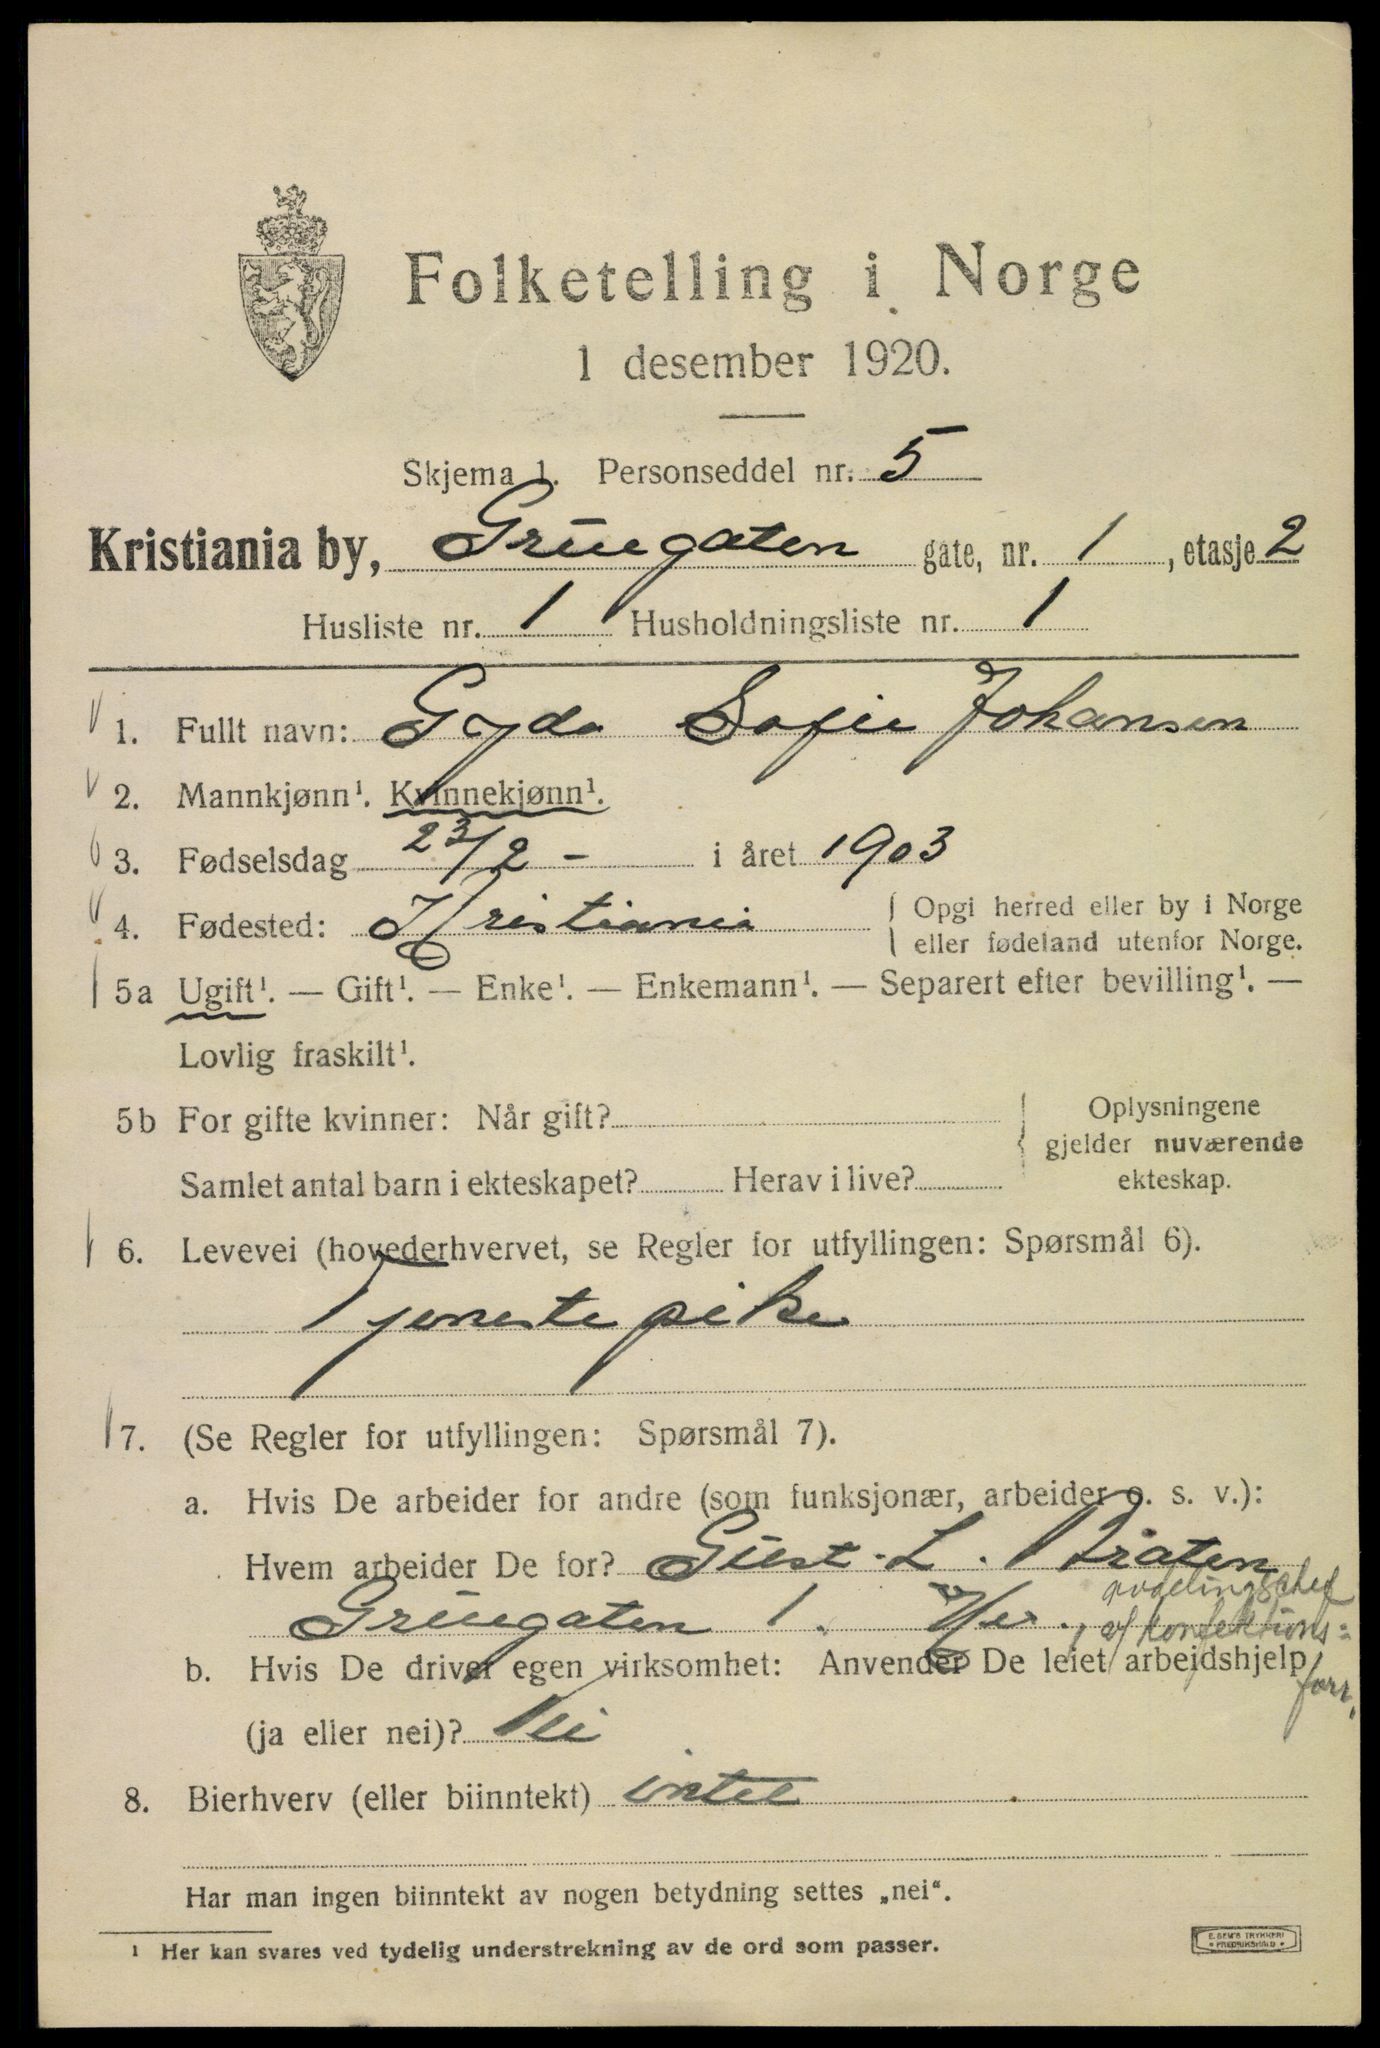 Folketelling i Norge
1 desember 1920.
Skjema 1. Personseddel nr. 5
Kristiania by, Grüngaten gate, nr. 1, etasje 2
Husliste nr. 1 Husholdningsliste nr. 1
1. Fullt navn: Gyda Sofie Johansen
2. Mannkjønn¹. Kvinnekjønn¹.
3. Fødselsdag 23/2 - i året 1903
4. Fødested: Kristiania { Opgi herred eller by i Norge
eller fødeland utenfor Norge.
5a Ugift¹. — Gift¹. — Enke¹. — Enkemann¹. — Separert efter bevilling¹. —
Lovlig fraskilt¹.
5b For gifte kvinner: Når gift?
Samlet antal barn i ekteskapet? Herav i live?
{ Oplysningene
gjelder nuværende
ekteskap.
6. Levevei (hovederhvervet, se Regler for utfyllingen: Spørsmål 6).
Tjenestepike
7. (Se Regler for utfyllingen: Spørsmål 7).
a. Hvis De arbeider for andre (som funksjonær, arbeider o. s. v.):
Hvem arbeider De for? Gust. L. Bråten
Grüngaten 1. , avdelingschef
af konfektions=
forr.
b. Hvis De driver egen virksomhet: Anvender De leiet arbeidshjelp
(ja eller nei)? Nei
8. Bierhverv (eller biinntekt) intet
Har man ingen biinntekt av nogen betydning settes „nei“.
¹ Her kan svares ved tydelig understrekning av de ord som passer.
E. SEM'S TRYKKERI
• FREDRIKSHALD •